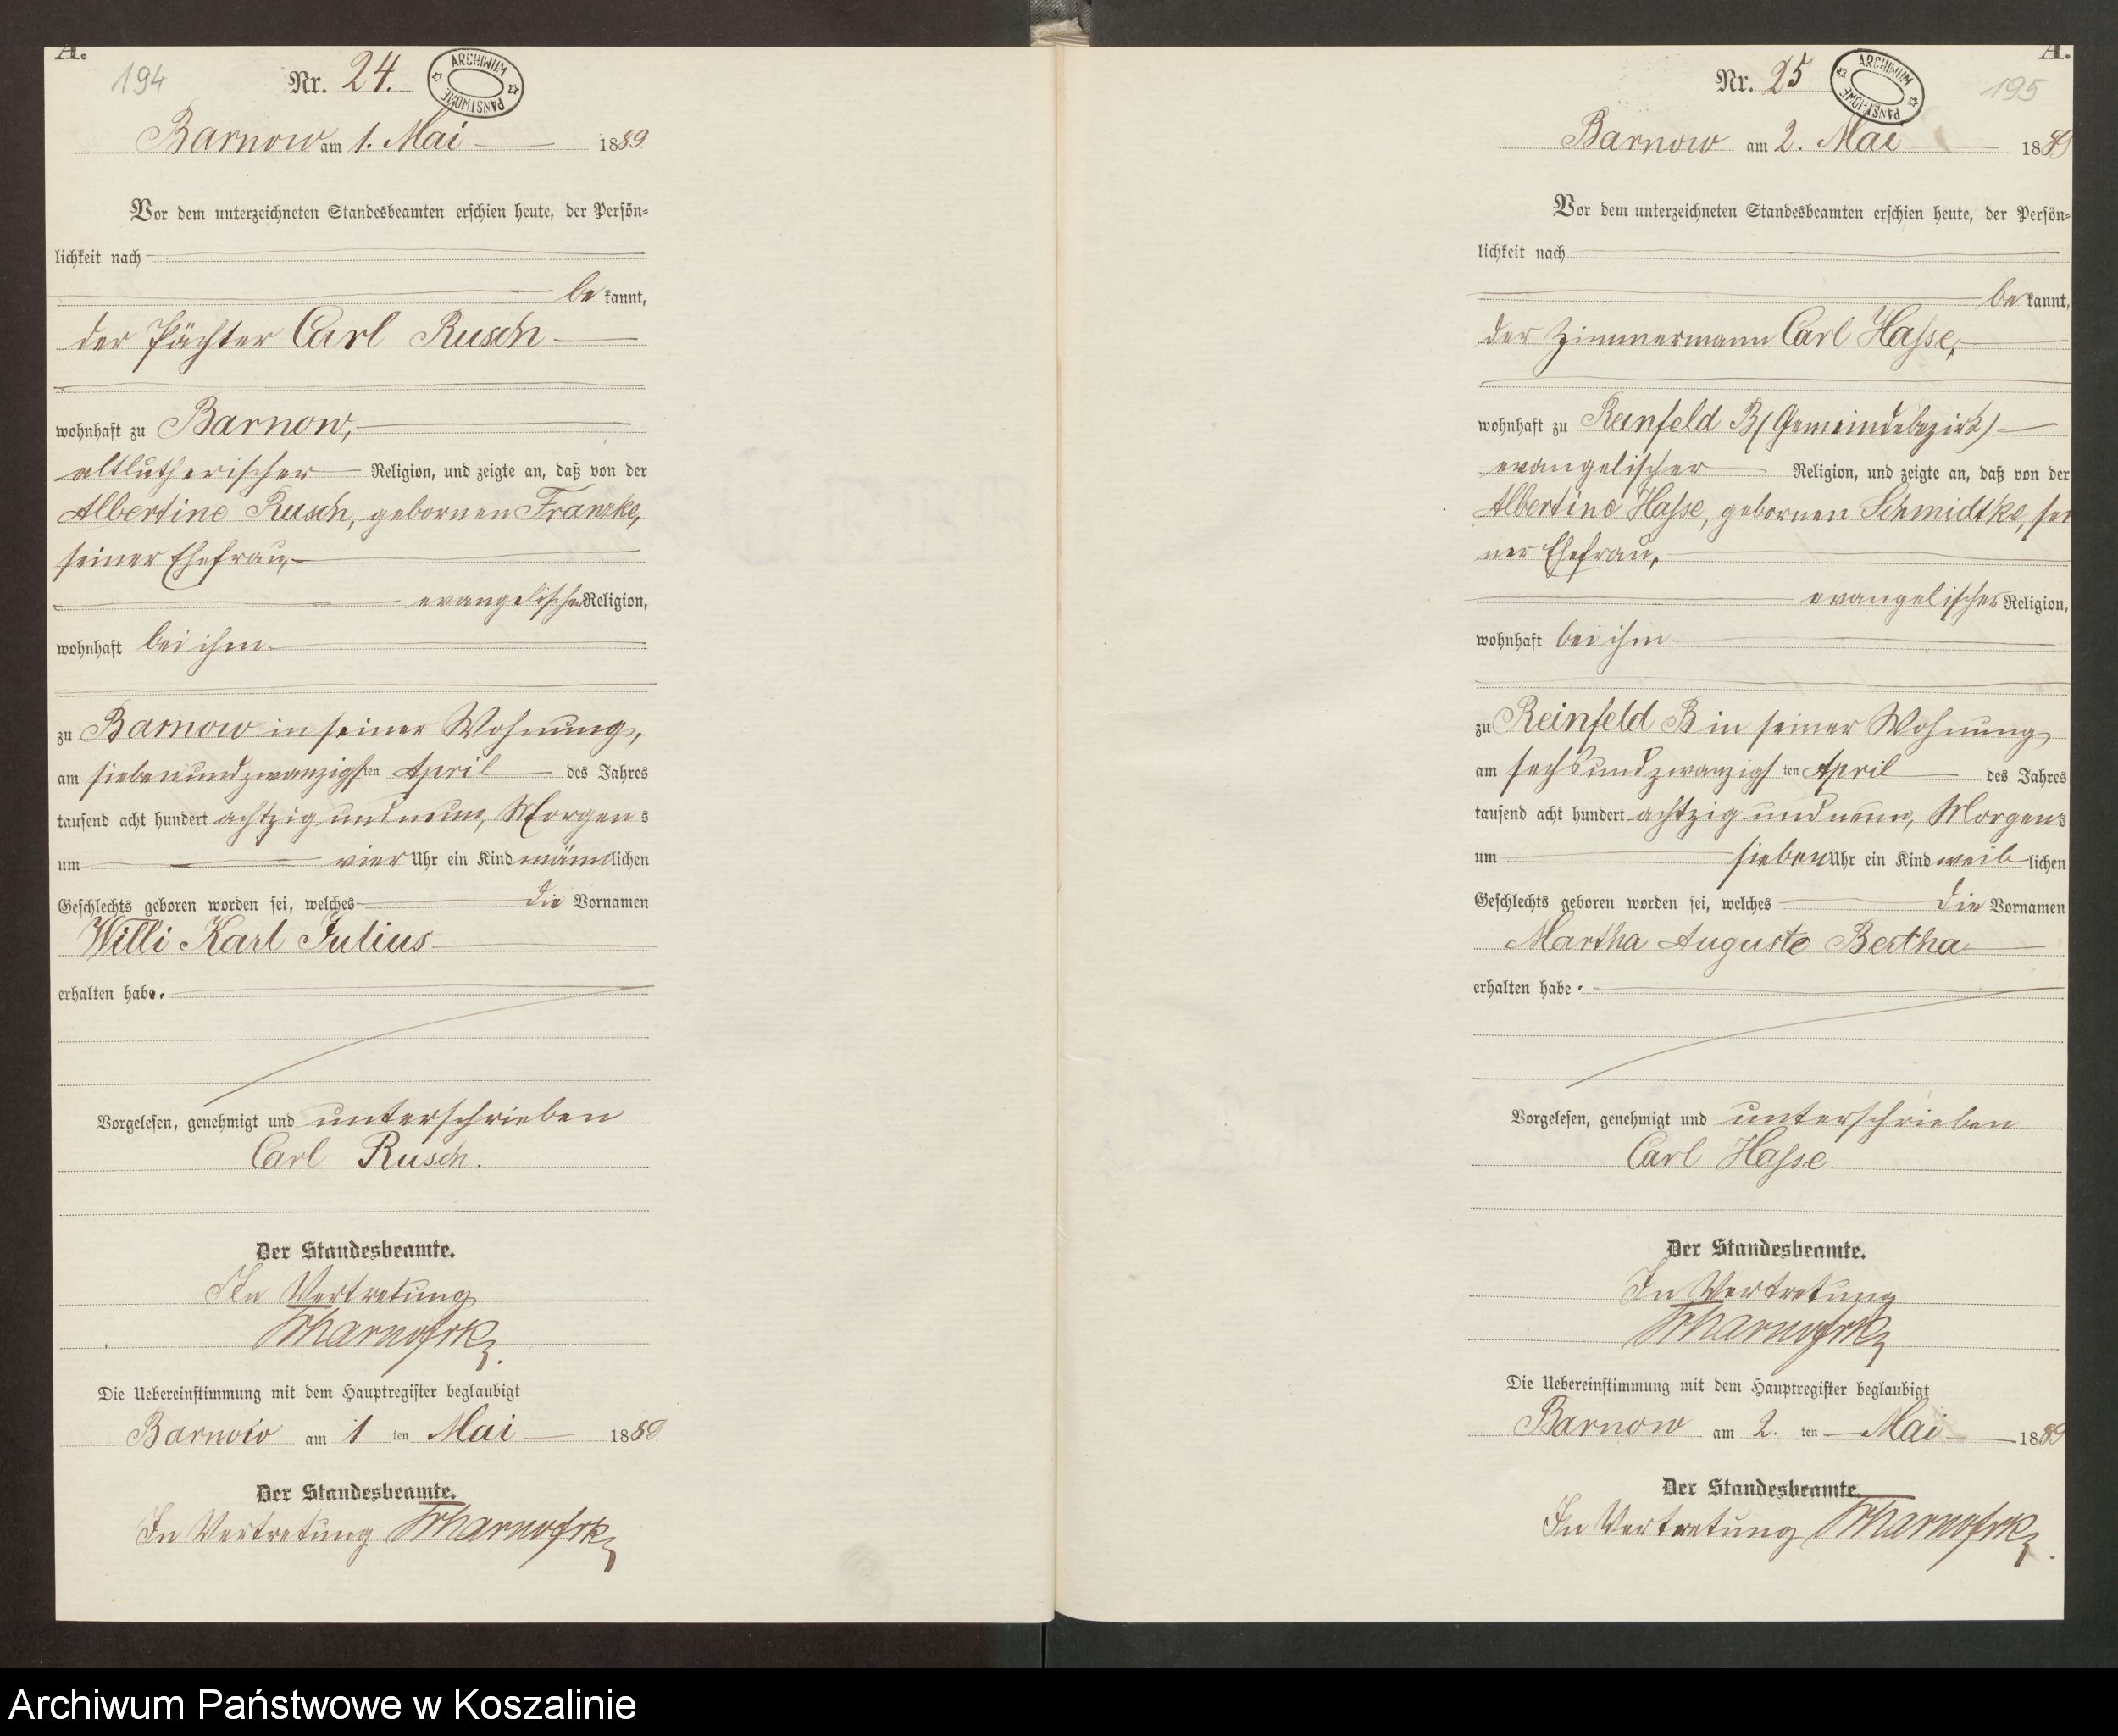 A.
194
Nr. 24.
ARCHIWUM PAŃSTWOWE
Barnow am 1. Mai 1889.
Vor dem unterzeichneten Standesbeamten erschien heute, der Persön=
lichkeit nach
be kannt,
der Pächter Carl Rusch
wohnhaft zu Barnow,
altlutherischer Religion, und zeigte an, daß von der
Albertine Rusch, gebornen Franzke,
seiner Ehefrau,
evangelischer Religion,
wohnhaft bei ihm
zu Barnow in seiner Wohnung,
am siebenundzwanzigsten April des Jahres
tausend acht hundert achtzig und neun, Morgens
um vier Uhr ein Kind männlichen
Geschlechts geboren worden sei, welches die Vornamen
Willi Karl Julius
erhalten habe.
Vorgelesen, genehmigt und unterschrieben
Carl Rusch.
Der Standesbeamte.
In Vertretung
Die Uebereinstimmung mit dem Hauptregister beglaubigt
Barnow am 1 ten Mai 1889.
Der Standesbeamte.
In Vertretung
A.
Nr. 25
195
ARCHIWUM PAŃSTWOWE
Barnow am 2. Mai 1889
Vor dem unterzeichneten Standesbeamten erschien heute, der Persön=
lichkeit nach
be kannt,
der Zimmermann Carl Hasse,
wohnhaft zu Reinfeld B (Gemeindebezirk)
evangelischer Religion, und zeigte an, daß von der
Albertine Hasse, gebornen Schmidtke, sei
ner Ehefrau,
evangelischer Religion,
wohnhaft bei ihm
zu Reinfeld B in seiner Wohnung
am sechsundzwanzigsten April des Jahres
tausend acht hundert achtzig und neun, Morgens
um sieben Uhr ein Kind weiblichen
Geschlechts geboren worden sei, welches die Vornamen
Martha Auguste Bertha
erhalten habe.
Vorgelesen, genehmigt und unterschrieben
Carl Hasse.
Der Standesbeamte.
In Vertretung
Die Uebereinstimmung mit dem Hauptregister beglaubigt
Barnow am 2. ten Mai 1889
Der Standesbeamte.
In Vertretung
Archiwum Państwowe w Koszalinie